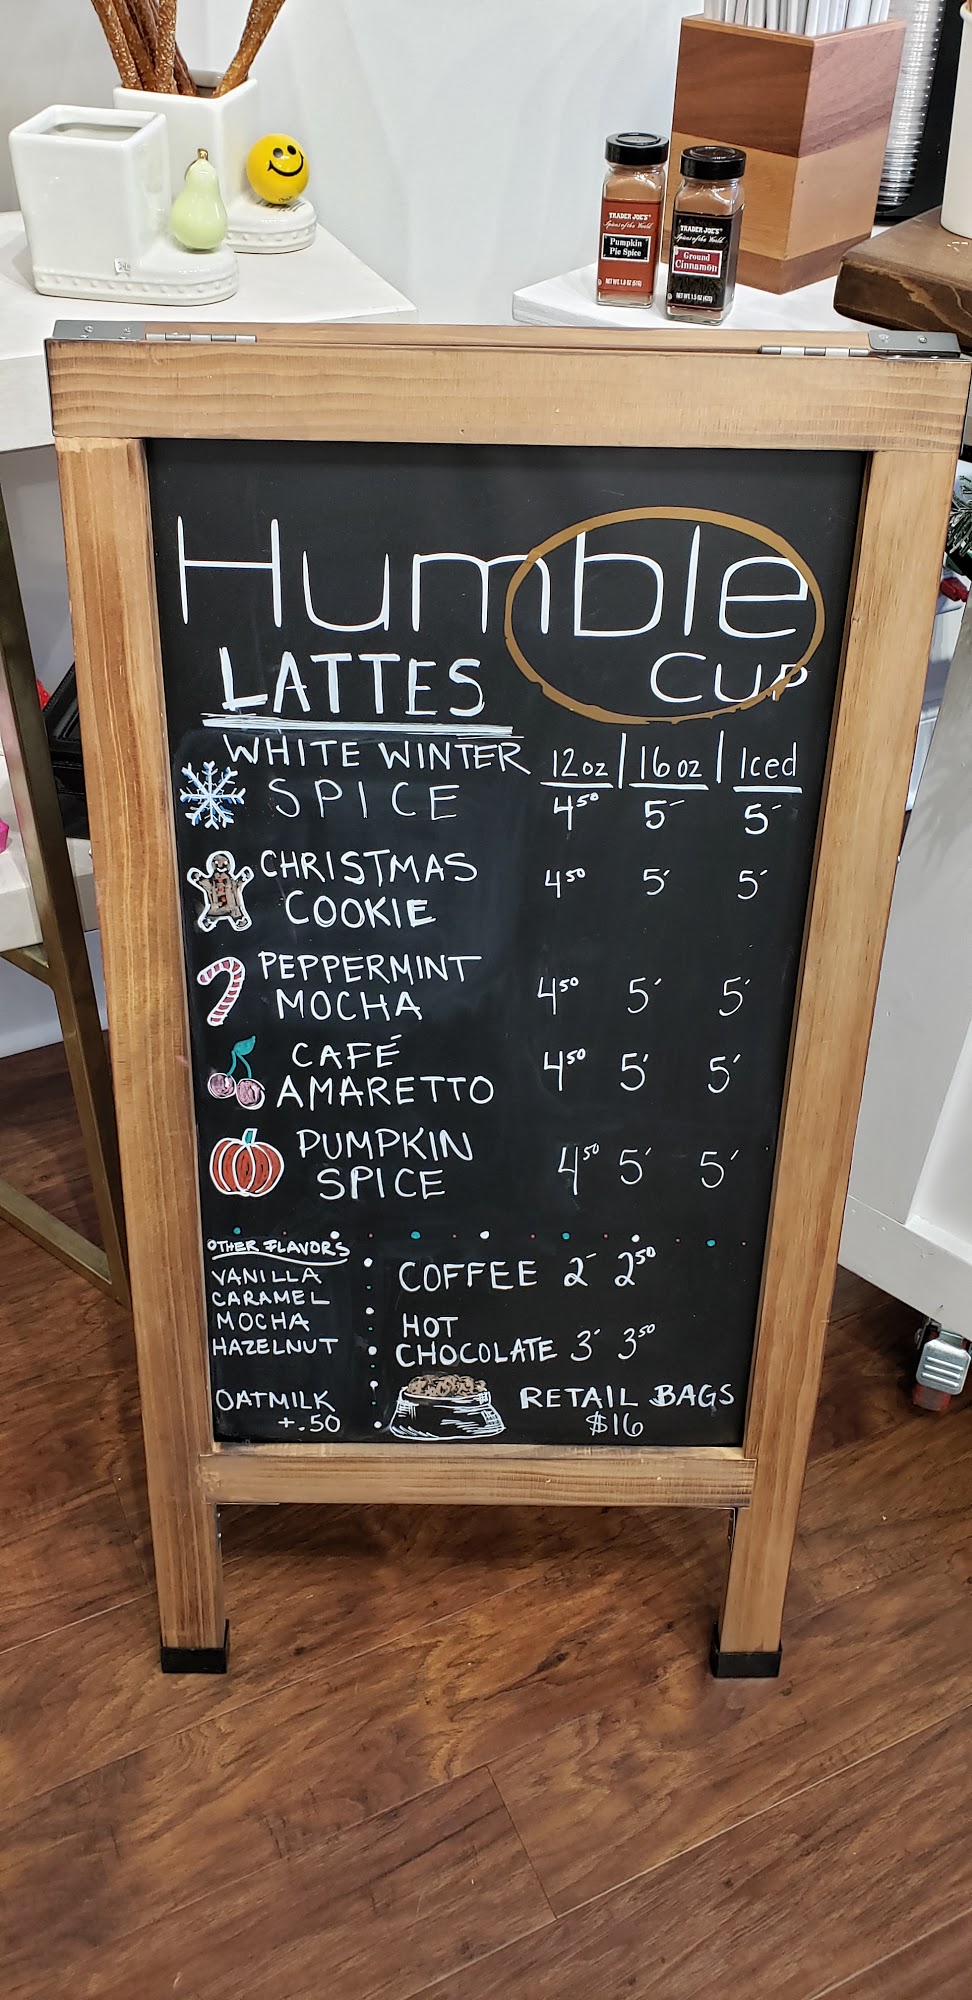 TRADER JOE'S
Spices of the World
Pumpkin
Pie Spice
NET WT. 1.8 OZ (51G)
TRADER JOE'S
Spices of the World
Ground
Cinnamon
Humble
CUP
LATTES
12oz | 16oz | Iced
WHITE WINTER
SPICE 4 50 5 - 5 -
CHRISTMAS
COOKIE 4 50 5 - 5 -
PEPPERMINT
MOCHA 4 50 5 - 5 -
CAFÉ
AMARETTO 4 50 5 - 5 -
PUMPKIN
SPICE 4 50 5 - 5 -
OTHER FLAVORS
VANILLA
CARAMEL
MOCHA
HAZELNUT
OATMILK
+.50
COFFEE 2 - 2 50
HOT
CHOCOLATE 3 - 3 50
RETAIL BAGS
$16